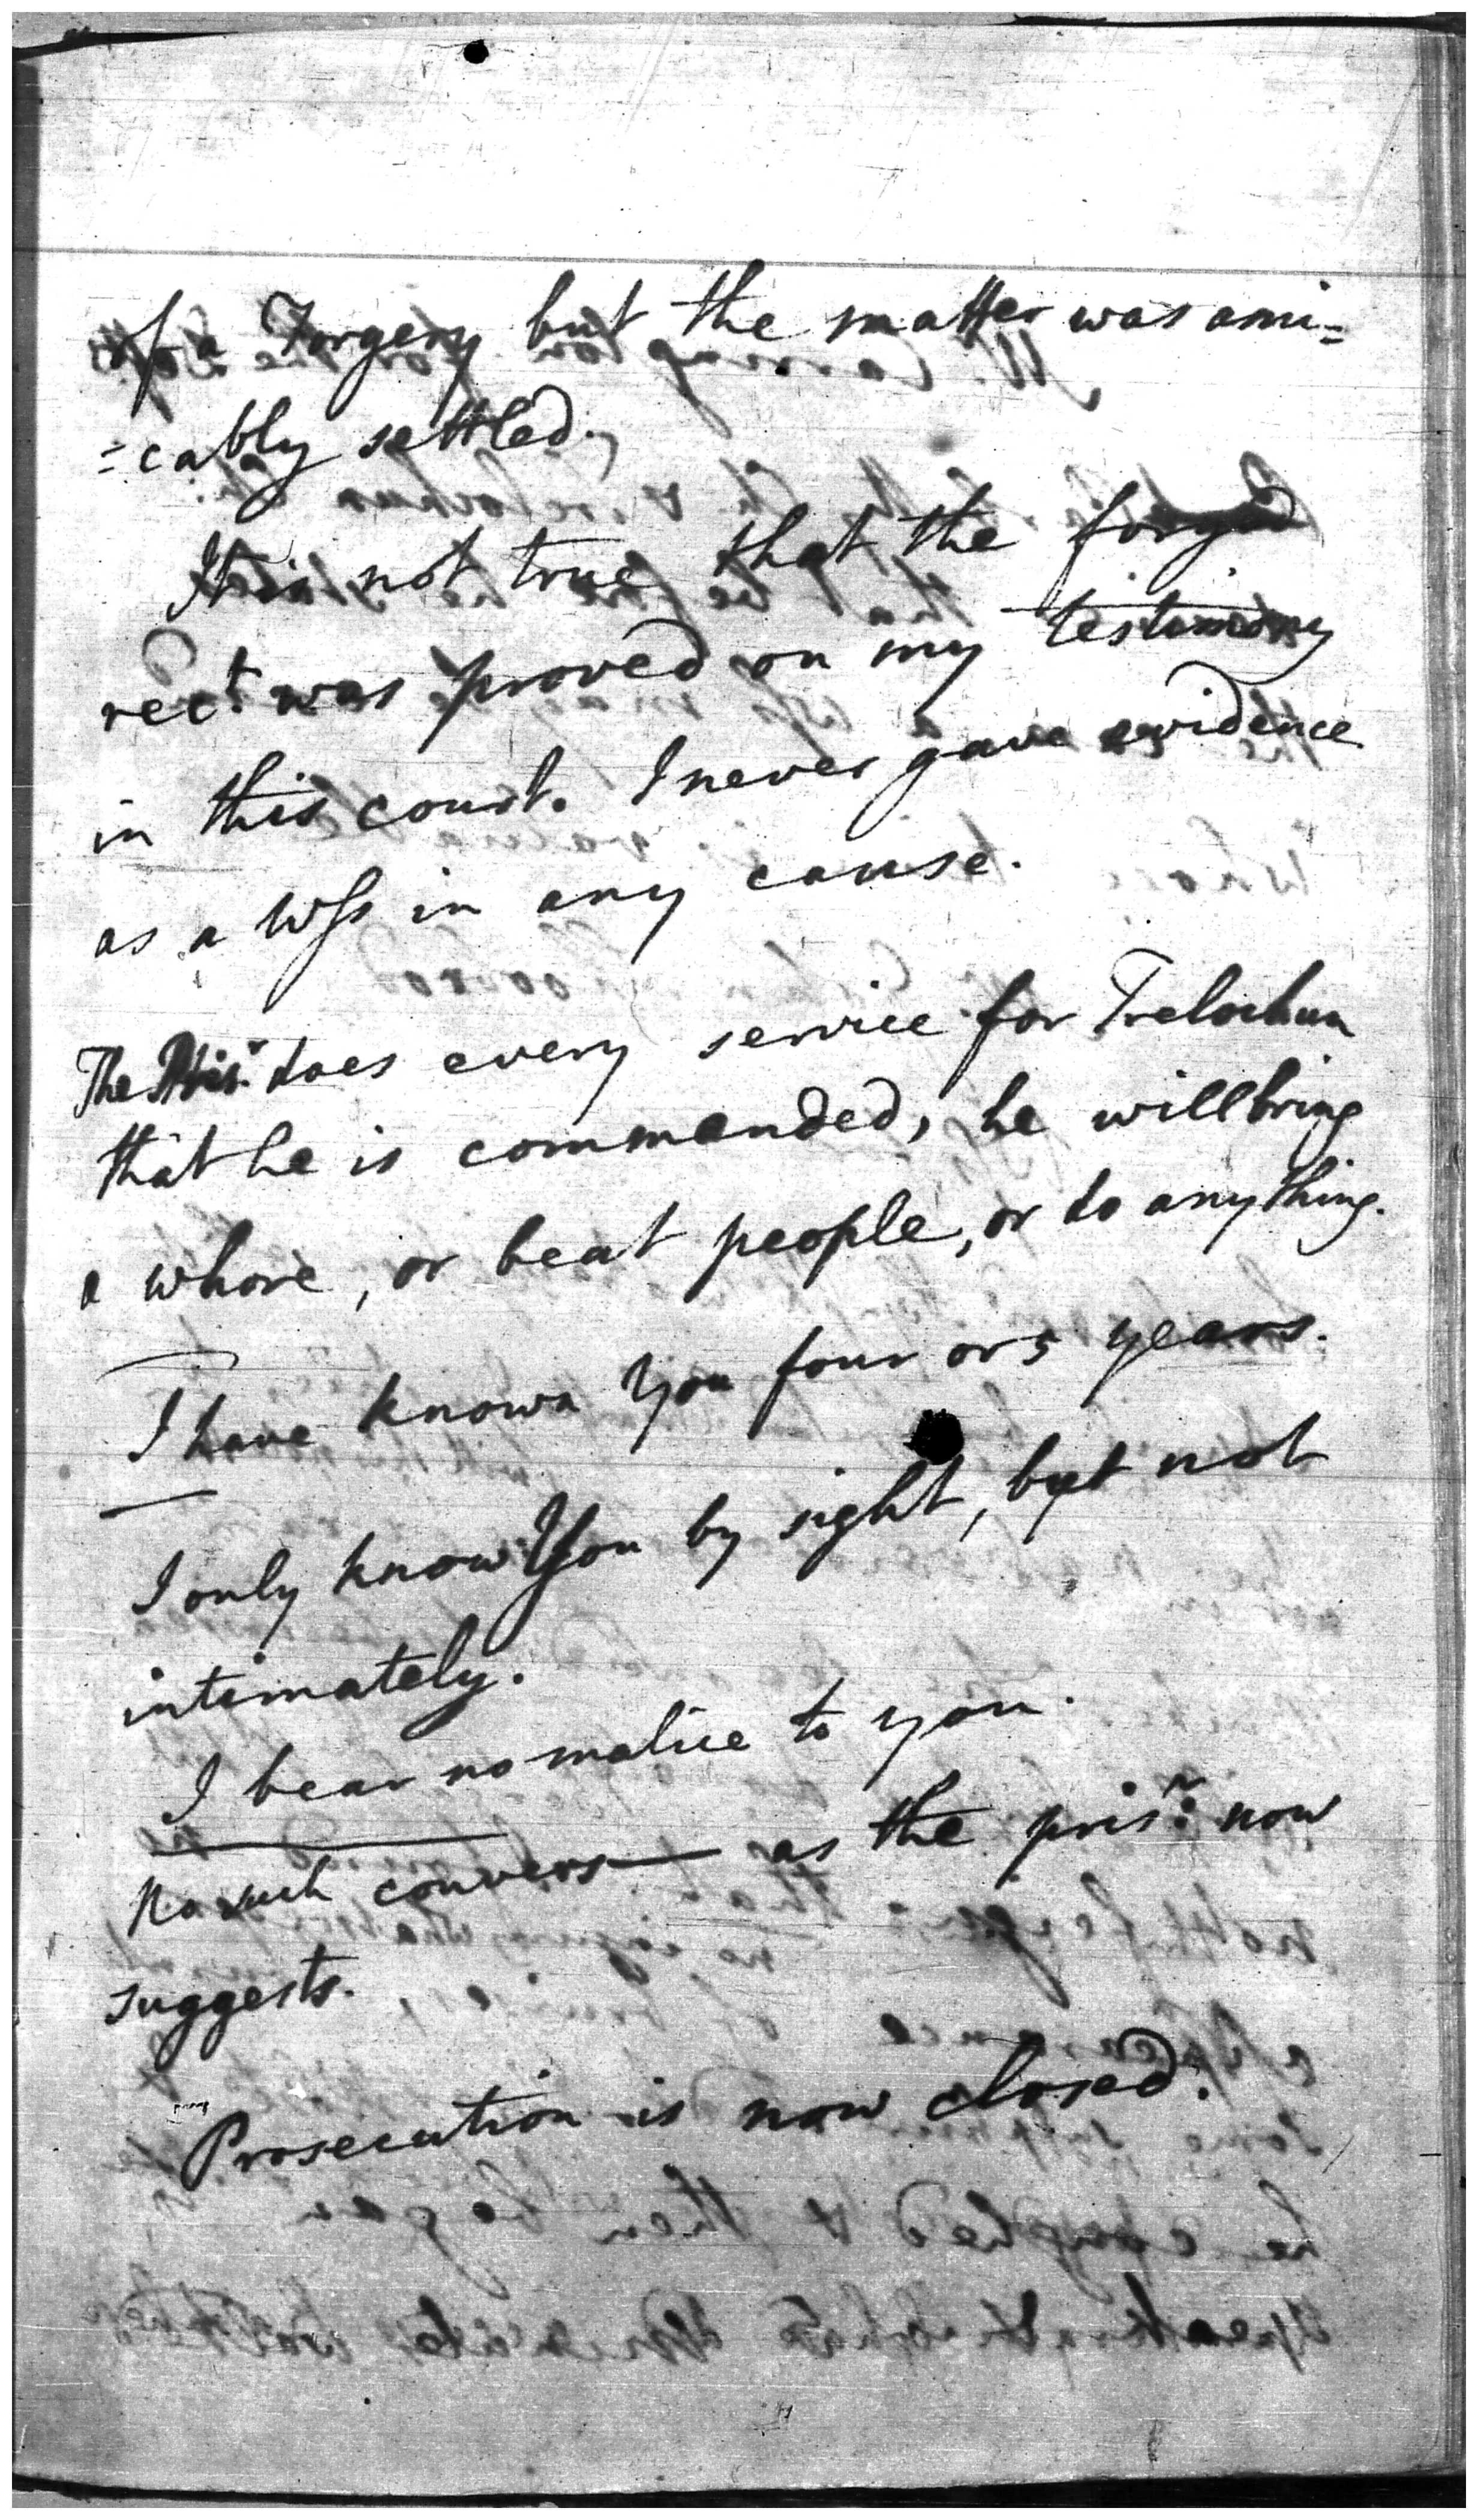 of a Forgery but the matter was ami=
=cably settled.
It is not true that the forged
rect. was proved on my testimony
in this court. I never gave evidence
as a Wss in any cause.
The Prisr. does every service for Trelochun
that he is commanded, he will bring
a whore, or beat people, or do any thing.
I have known you four or 5 years.
I only know You by sight, but not
intimately.
I bear no malice to you.
No such convers— as the prisr. now
suggests.
Prosecution is now closed.